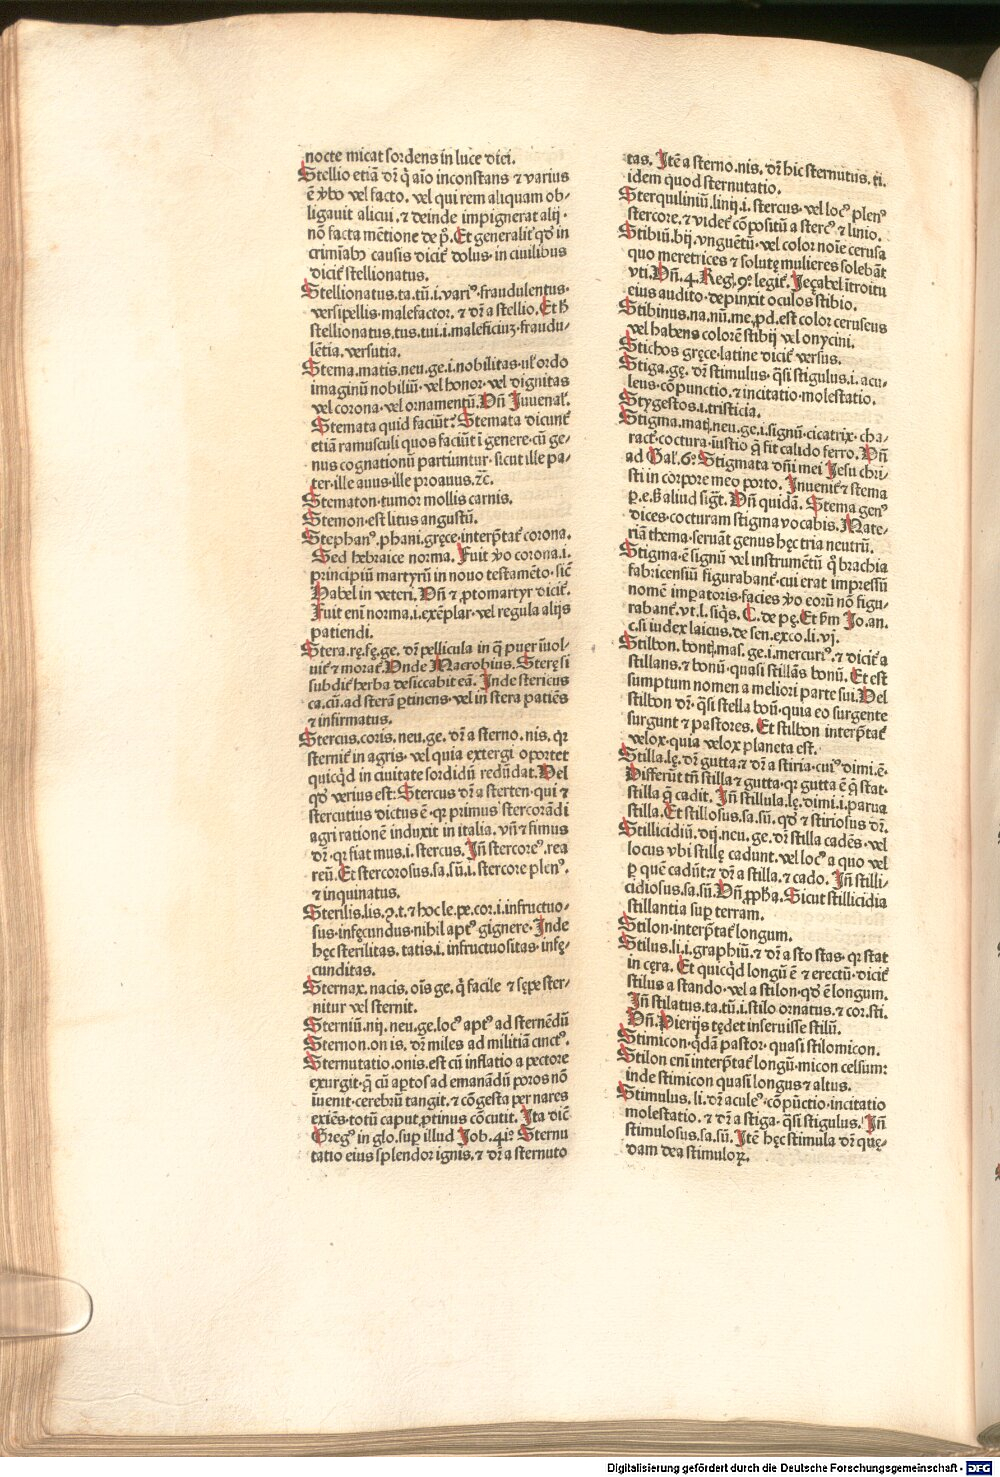 nocte micat sordens in luce dici.
Stellio etiã dr̃ q̃ aĩo inconstans ⁊ varius
ẽ ṽbo vel facto. vel qui rem aliquam ob-
ligauit alicui. ⁊ deinde impignerat alij.
nõ facta mẽtione de p̃. Et generalit̃ qđ in
crimĩabꝫ causis dicit̃ dolus. in ciuilibus
dicit̃ stellionatus.
Stellionatus. ta. tũ. i. variꝰ. fraudulentus.
versipellis. malefactor. ⁊ dr̃ a stellio. Et h̃
stellionatus. tus. tui. i. maleficiuꝫ. fraudu-
lẽtia. versutia.
Stema. matis. neu. ge. i. nobilitas. ul̃ ordo
imaginũ nobiliũ. vel honor. vel dignitas
vel corona. vel ornamentũ. Vñ Juuenal̃.
Stemata quid faciũt? Stemata dicunt̃
etiã ramusculi quos faciũt ĩ genere. cũ ge-
nus cognationũ partiuntur. sicut ille pa-
ter. ille auus. ille proauus. ⁊c̃.
Stematon. tumor mollis carnis.
Stemon. est litus angustũ.
Stephanꝰ. phani. gręce. interp̃tat̃ corona.
Sed hebraice norma. Fuit ṽo corona. i.
principiũ martyrũ in nouo testamẽto. sic̃
Habel in veteri. Vñ ⁊ ꝓtomartyr dicit̃.
Fuit enĩ norma. i. exẽplar. vel regula alijs
patiendi.
Stera. rę. fę. ge. dr̃ pellicula in q̃ puer ĩuol-
uit̃ ⁊ morat̃. Vnde Macrobius. Sterę si
subdit̃ herba desiccabit eã. Inde stericus
ca. cũ. ad sterã ꝑtinens. vel in stera patiẽs
⁊ infirmatus.
Stercus. coris. neu. ge. dr̃ a sterno. nis. qꝛ
sternit̃ in agris. vel quia extergi oportet
quicq̃d in ciuitate sordidũ redũdat. Vel
qđ verius est: Stercus dr̃ a sterten. qui ⁊
stercutius dictus ẽ. qꝛ primus stercorãdi
agri rationẽ induxit in italia. vñ ⁊ fimus
dr̃. qꝛ fiat mus. i. stercus. Jñ stercoreꝰ. rea
reũ. Et stercorosus. sa. sũ. i. stercore plenꝰ.
⁊ inquinatus.
Sterilis. lis. ꝯ. t. ⁊ hoc le. pe. cor. i. infructuo-
sus. infęcundus. nihil aptꝰ gignere. Inde
hęc sterilitas. tatis. i. infructuositas. infę-
cunditas.
Sternax. nacis. oĩs ge. q̃ facile ⁊ sępe ster-
nitur vel sternit.
Sterniũ. nij. neu. ge. locꝰ aptꝰ ad sternẽdũ
Sternon. on is. dr̃ miles ad militiã cinctꝰ.
Sternutatio. onis. est cũ inflatio a pectore
exurgit. q̃ cũ aptos ad emanãdũ poros nõ
ĩuenit. cerebrũ tangit. ⁊ cõgesta per nares
exiẽs. totũ caput ꝓtinus cõcutit. Ita dic̃
Gregꝰ in glo. sup illud Job. 41ꝰ. Sternu
tatio eius splendor ignis. ⁊ dr̃ a sternuto
tas. Itẽ a sterno. nis. dr̃ hic sternutus. ti.
idem quod sternutatio.
Sterquiliniũ. linij. i. stercus. vel locꝰ plenꝰ
stercore. ⁊ videt̃ cõpositũ a stercꝰ ⁊ linio.
Stibiũ. bij. vnguẽtũ. vel color noĩe cerusa
quo meretrices ⁊ solutę mulieres solebãt
vti. Vñ. 4. Reg̃. 9ꝰ. legit̃. Jeçabel ĩtroitu
eius audito. depinxit oculos stibio.
Stibinus. na. nũ. me. ꝓd. est color ceruseus
vel habens colorẽ stibij vel onycini.
Stichos gręce. latine dicit̃ versus.
Stiga. gę. dr̃ stimulus. q̃si stigulus. i. acu-
leus. cõpunctio. ⁊ incitatio. molestatio.
Stygestos. i. tristicia.
Stigma. matĩ. neu. ge. i. signũ. cicatrix. cha-
ract̃. coctura. ĩustio q̃ fit calido ferro. Vñ
ad Gal̃. 6ꝰ. Stigmata dñi mei Jesu chri-
sti in corpore meo porto. Inuenit̃ ⁊ stema
p. e. ß aliud sigt̃. Vñ quidã. Stema genꝰ
dices. cocturam stigma vocabis. Mate-
riã thema. seruãt genus hęc tria neutrũ.
Stigma. ẽ signũ vel instrumẽtũ q̃ brachia
fabricensiũ figurabant̃. cui erat impressũ
nomẽ imꝑatoris. facies ṽo eorũ nõ figu-
rabant̃. vt. l. siq̃s. C. de pę. Et ßm Jo. an.
c. si iudex laicus. de sen. exco. li. vj.
Stilbon. bontĩ. mas. ge. i. mercuriꝰ. ⁊ dicit̃ a
stillans. ⁊ bonũ. quasi stillãs bonũ. Et est
sumptum nomen a meliori parte sui. Vel
stilbon dr̃. q̃si stella boũ. quia eo surgente
surgunt ⁊ pastores. Et stilbon interp̃tat̃
velox. quia velox planeta est.
Stilla. lę. dr̃ gutta. ⁊ dr̃ a stiria. cuiꝰ dimi. ẽ.
Differũt tñ stilla ⁊ gutta. qꝛ gutta ẽ q̃ stat.
stilla q̃ cadit. Jñ stillula. lę. dimi. i. parua
stilla. Et stillosus. sa. sũ. qđ ⁊ stiriosus dr̃.
Stillicidiũ. dij. neu. ge. dr̃ stilla cadẽs. vel
locus vbi stillę cadunt. vel locꝰ a quo vel
ꝑ quẽ cadũt. ⁊ dr̃ a stilla. ⁊ cado. Jñ stilli-
cidiosus. sa. sũ. Vñ ꝓph̃a. Sicut stillicidia
stillantia sup terram.
Stilon. interp̃tat̃ longum.
Stilus. li. i. graphiũ. ⁊ dr̃ a sto stas. qꝛ stat
in cęra. Et quicq̃d longũ ẽ ⁊ erectũ. dicit̃
stilus a stando. vel a stilon. qđ ẽ longum.
Jñ stilatus. ta. tũ. i. stilo ornatus. ⁊ cor. sti.
Vñ. Pierijs tędet inseruisse stilũ.
Stimicon. q̃dã pastor. quasi stilomicon.
Stilon enĩ interp̃tat̃ longũ. micon celsum:
inde stimicon quasi longus ⁊ altus.
Stimulus. li. dr̃ aculeꝰ. cõpũctio. incitatio
molestatio. ⁊ dr̃ a stiga. q̃si stigulus. Jñ
stimulosus. sa. sũ. Itẽ hęc stimula dr̃ quę-
dam dea stimuloꝝ.
Digitalisierung gefördert durch die Deutsche Forschungsgemeinschaft - DFG